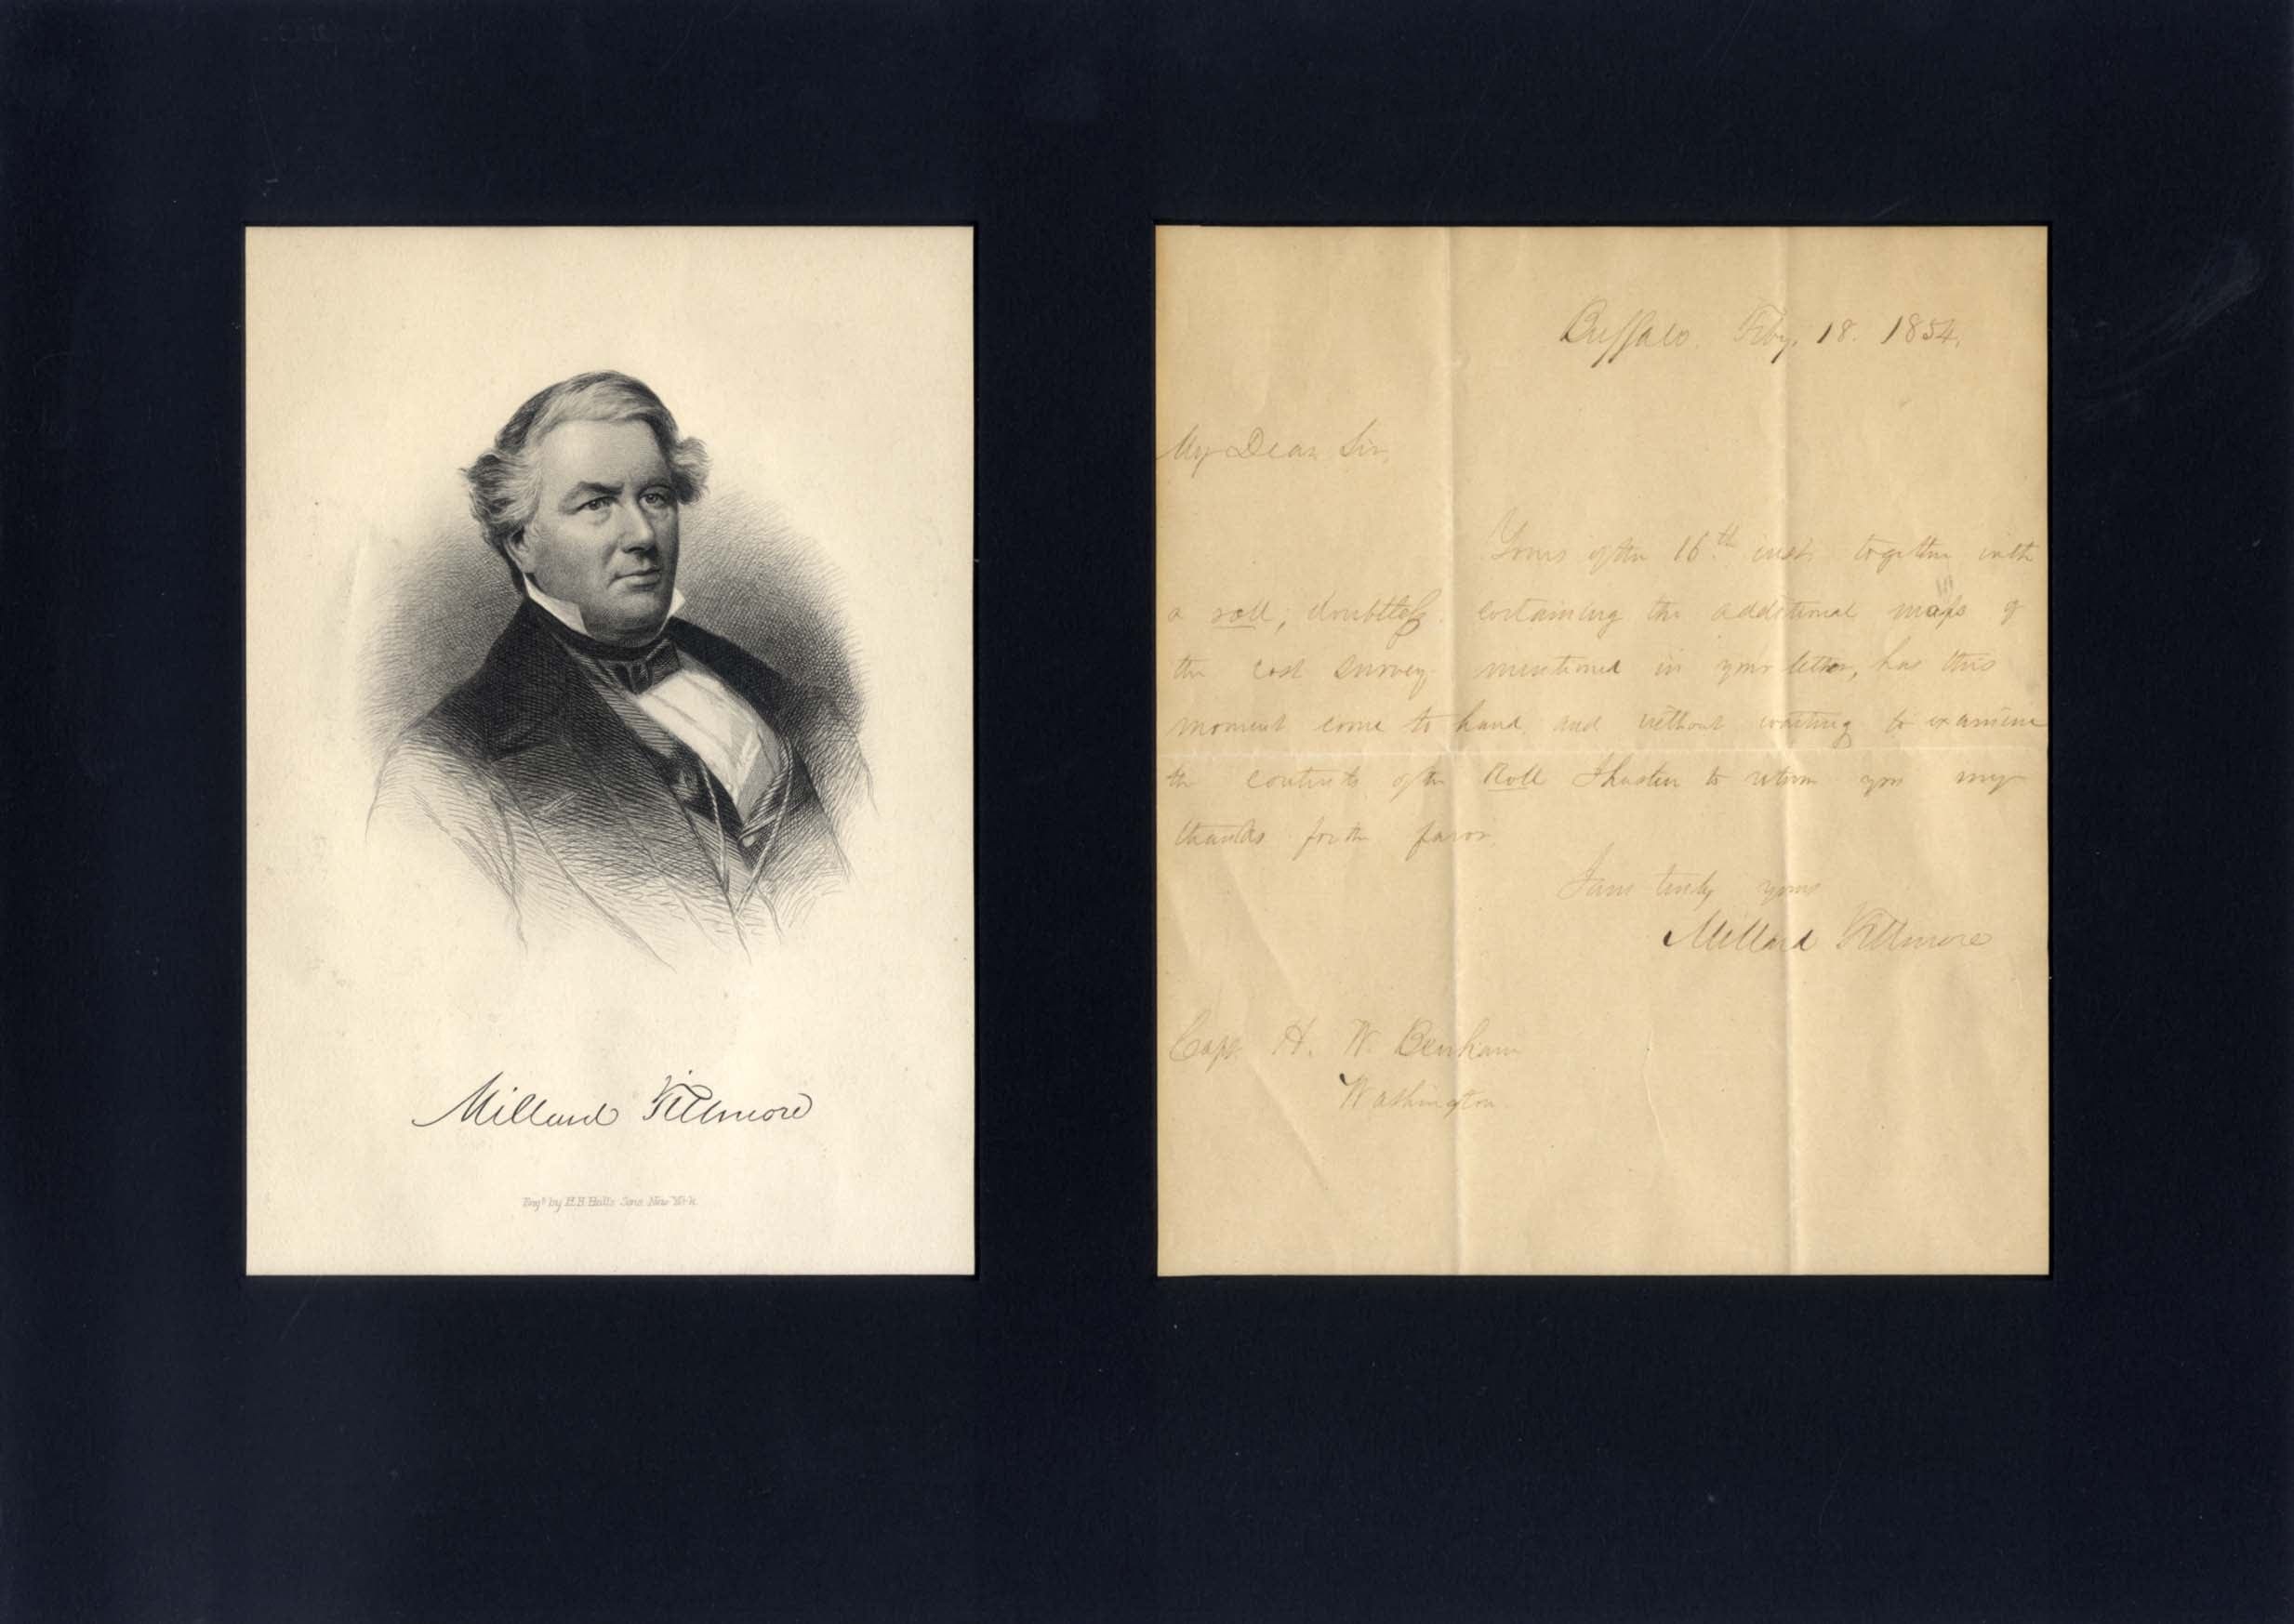 Millard Fillmore
Eng'd by H.B. Hall's Sons New York.
Buffalo. Feby. 18. 1854.
My Dear Sir,
Yours of the 16th inst. together with
a roll, doubtless containing the additional maps of
the cost survey mentioned in your letter, has this
moment come to hand and without waiting to examine
the contents of the Roll I hasten to return you my
thanks for the favor.
I am truly yours
Millard Fillmore
Capt. H. W. Benham
Washington